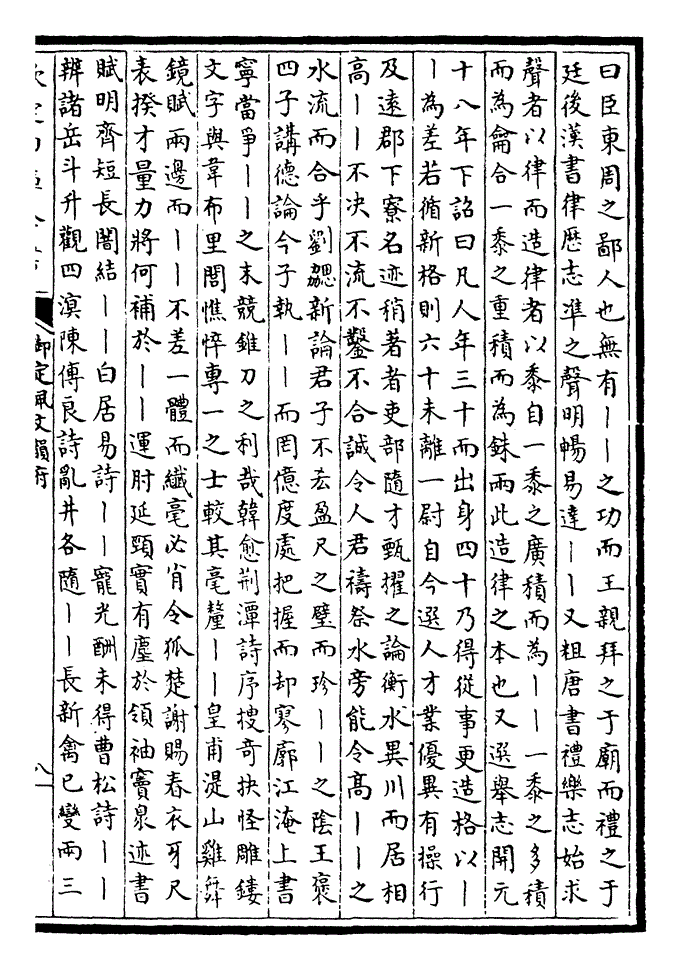 曰臣東周之鄙人也無有丨丨之功而王親拜之于廟而禮之于
廷後漢書律歷志準之聲明暢易達丨丨又粗唐書禮樂志始求
聲者以律而造律者以黍自一黍之廣積而為丨丨一黍之多積
而為龠合一黍之重積而為銖兩此造律之本也又選舉志開元
十八年下詔曰凡人年三十而出身四十乃得從事更造格以丨
丨為差若循新格則六十未離一尉自今選人才業優異有操行
及遠郡下寮名迹稍著者吏部隨才甄擢之論衡水異川而居相
高丨丨不决不流不鑿不合誠令人君禱祭水旁能令高丨丨之
水流而合乎劉勰新論君子不厺盈尺之璧而珍丨丨之陰王褒
四子講德論今子執丨丨而罔億度處把握而却寥廓江淹上書
寧當爭丨丨之末競錐刀之利哉韓愈荆潭詩序搜奇抉怪雕鏤
文字與韋布里閭憔悴專一之士較其毫釐丨丨皇甫湜山雞舞
鏡賦兩邊而丨丨不差一體而纖毫必肖令狐楚謝賜春衣牙尺
表揆才量力將何補於丨丨運肘延頸實有塵於領袖竇泉述書
賦明齊短長闇結丨丨白居易詩丨丨寵光酬未得曹松詩丨丨
辨諸岳斗升觀四溟陳傅良詩亂井各隨丨丨長新禽已變兩三
御定佩文韻府
八